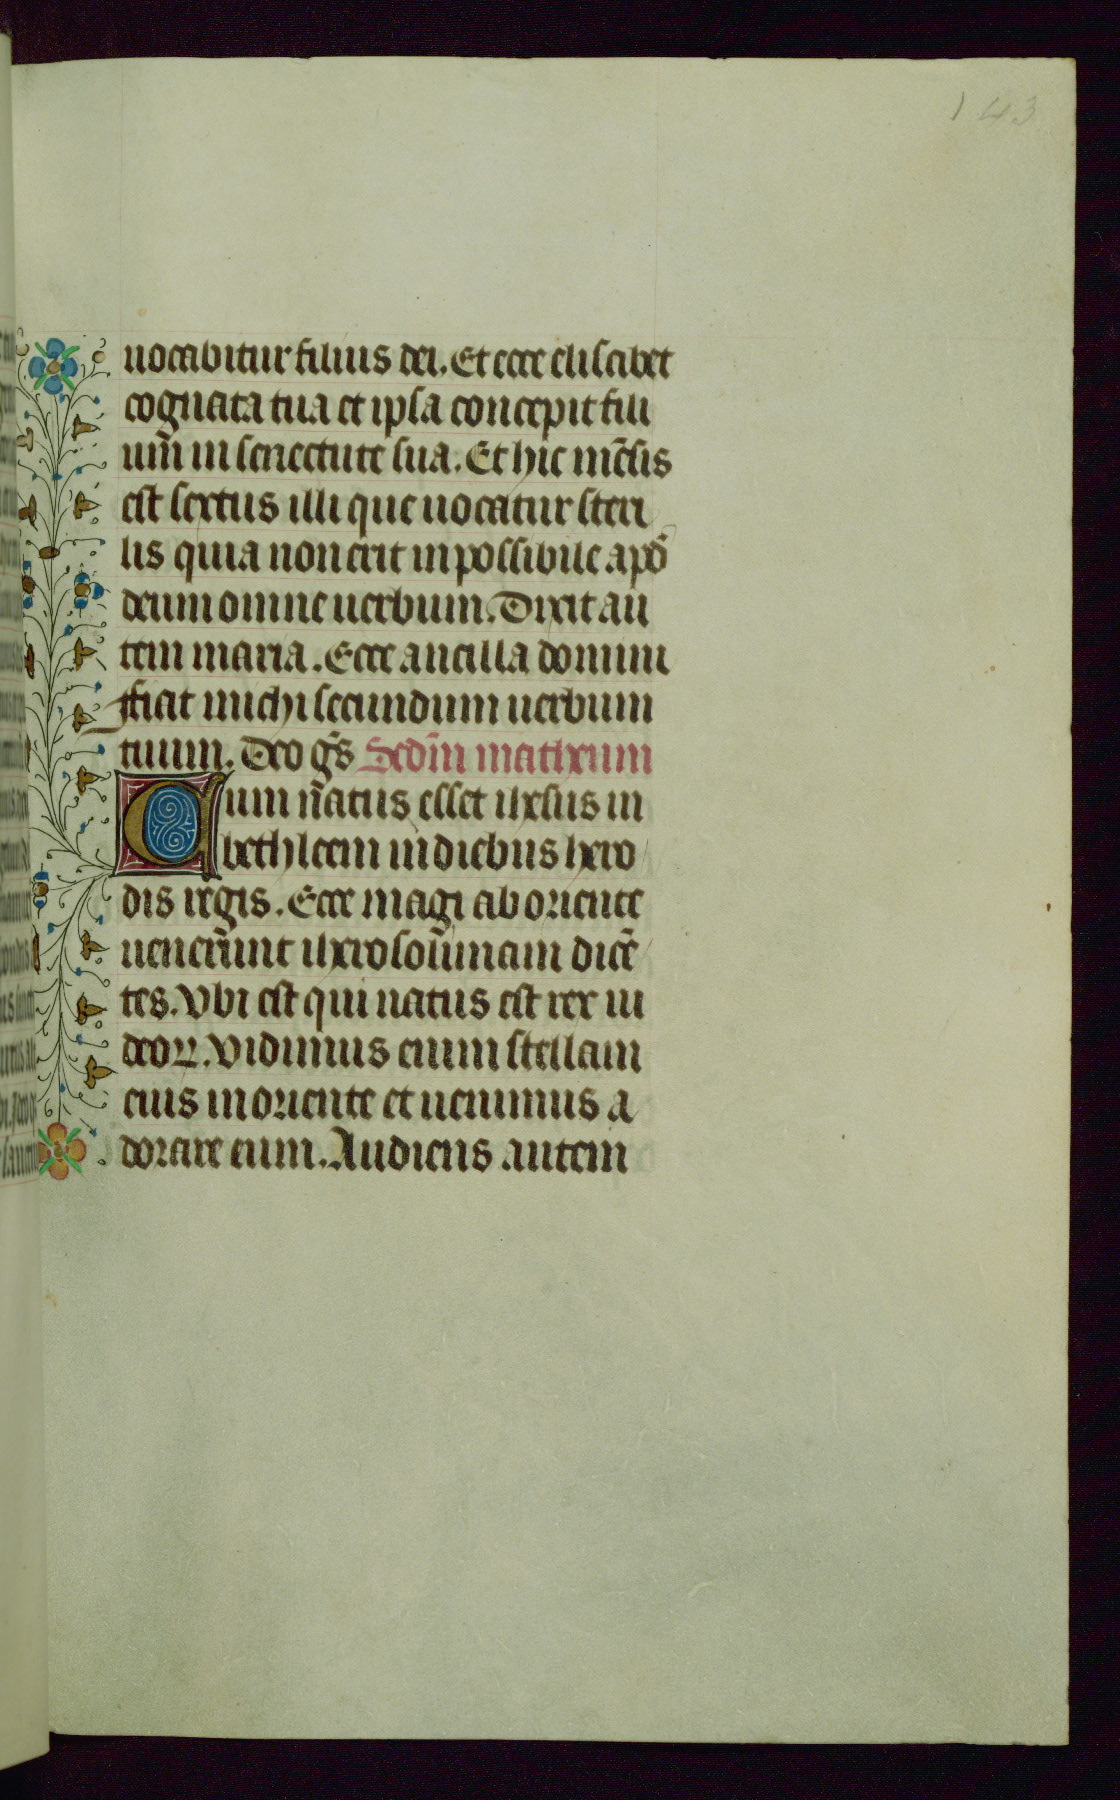 143
uocabitur filius dei. Et ecce elisabet
cognata tua et ipsa concepit fili
um̄ in senectute sua. Et hic mēsis
est sextus illi que uocatur steri
lis quia non erit inpossibile apd̄
deum omne uerbum. Dixit au
tem maria. Ecce ancilla domini
ffiat michi secundum uerbum
tuum. Deo gr̄s Sedm̄ matheum
Cum natus esset ihesus in
bethleem in diebus hero
dis regis. Ecce magi ab oriente
uenerūnt iherosolīmam dicē
tes. Vbi est qui natus est rex iu
deoꝝ. Vidimus enim stellam
eius in oriente et uenimus a
dorare eum. Audiens autem